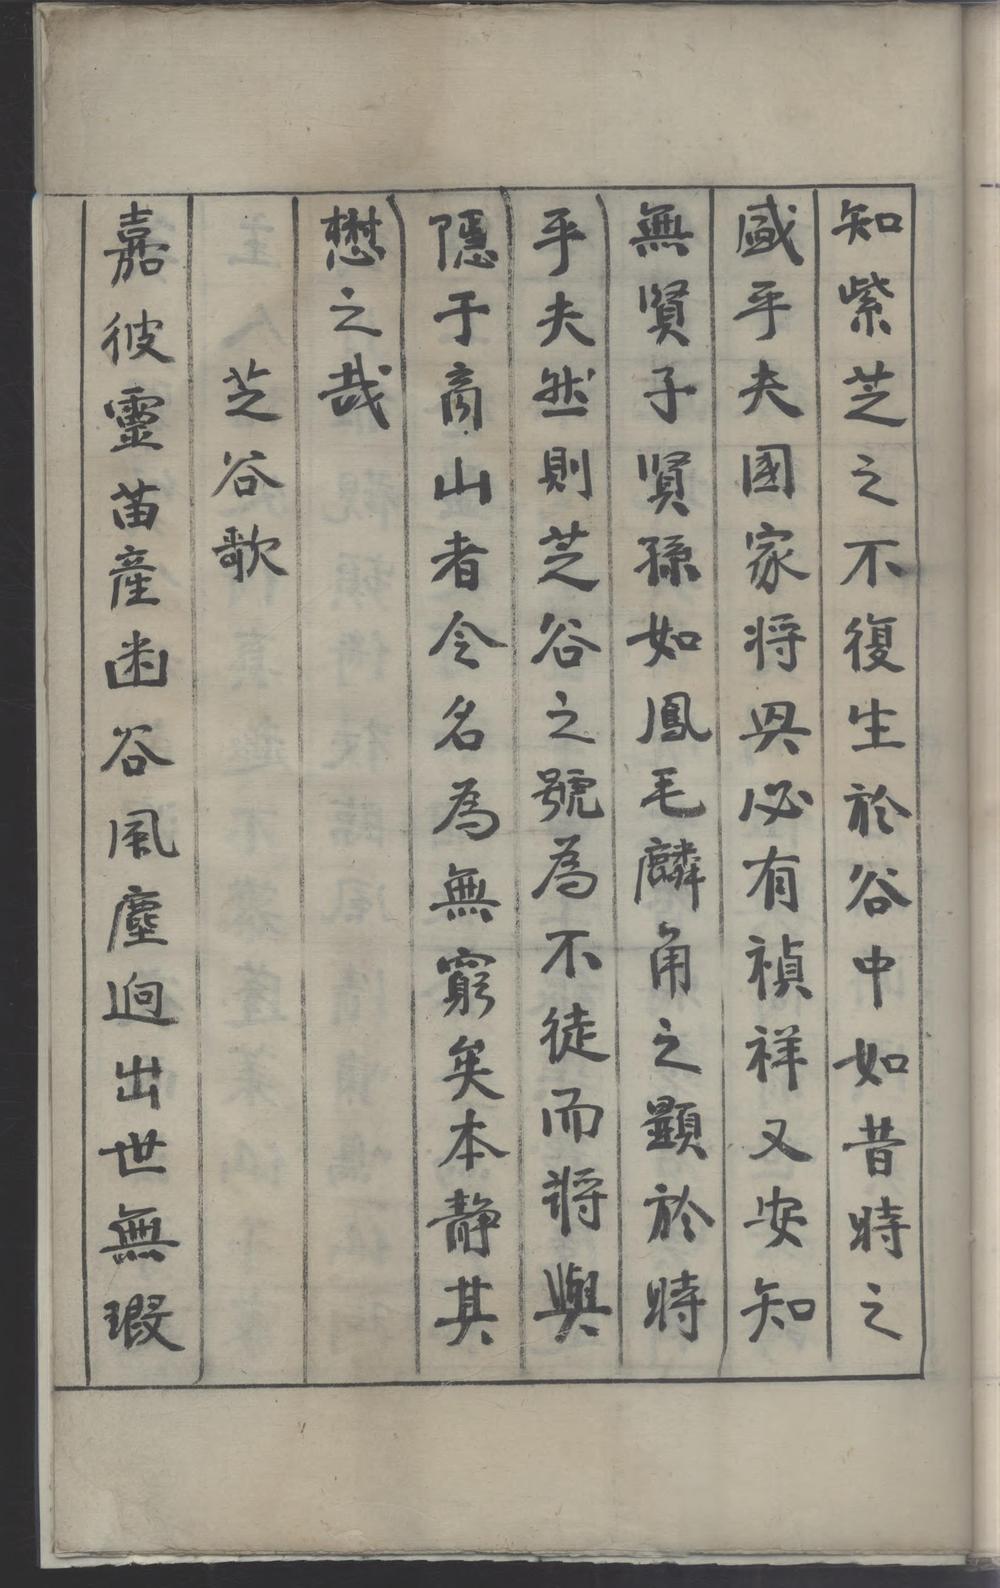 知紫芝之不復生於谷中如昔時之
盛乎夫國家将興必有禎祥又安知
無賢子賢孫如鳳毛麟角之顯於時
乎夫然則芝谷之號為不徒而将與
隱于商山者令名為無窮矣本静其
懋之哉
芝谷歌
嘉彼靈苗産幽谷風塵迥出世無瑕